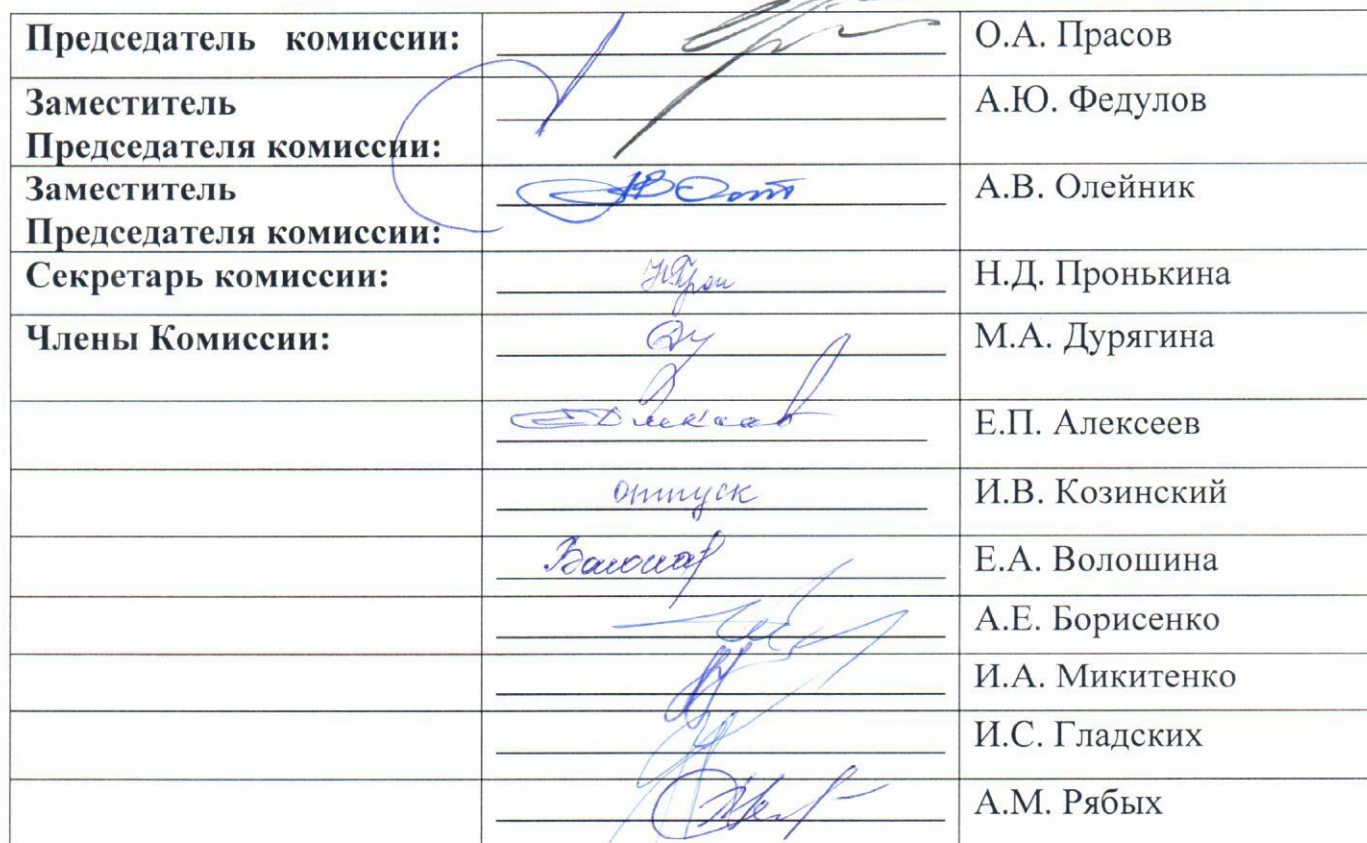 Председатель комиссии: О.А. Прасов
Заместитель А.Ю. Федулов
Председателя комиссии:
Заместитель А.В. Олейник
Председателя комиссии:
Секретарь комиссии: Н.Д. Пронькина
Члены Комиссии: М.А. Дурягина
Е.П. Алексеев
отпуск И.В. Козинский
Е.А. Волошина
А.Е. Борисенко
И.А. Микитенко
И.С. Гладских
А.М. Рябых